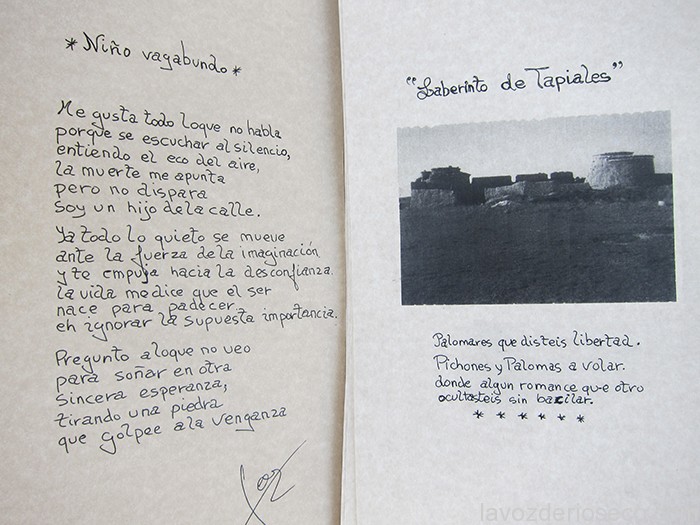 * Niño vagabundo *
Me gusta todo loque no habla
porque se escuchar al silencio,
entiendo el eco del aire,
la muerte me apunta
pero no dispara
soy un hijo dela calle.
Ya todo lo quieto se mueve
ante la fuerza de la imaginación
y te empuja hacia la desconfianza.
la vida medice que el ser
nace para padecer.
eh ignorar la supuesta importancia.
Pregunto aloque no veo
para soñar en otra
sincera esperanza,
tirando una piedra
que golpee ala venganza
"Laberinto de Tapiales"
Palomares que disteis libertad.
Pichones y Palomas a volar.
donde algun romance que otro
ocultasteis sin bacilar.
* * * * * *